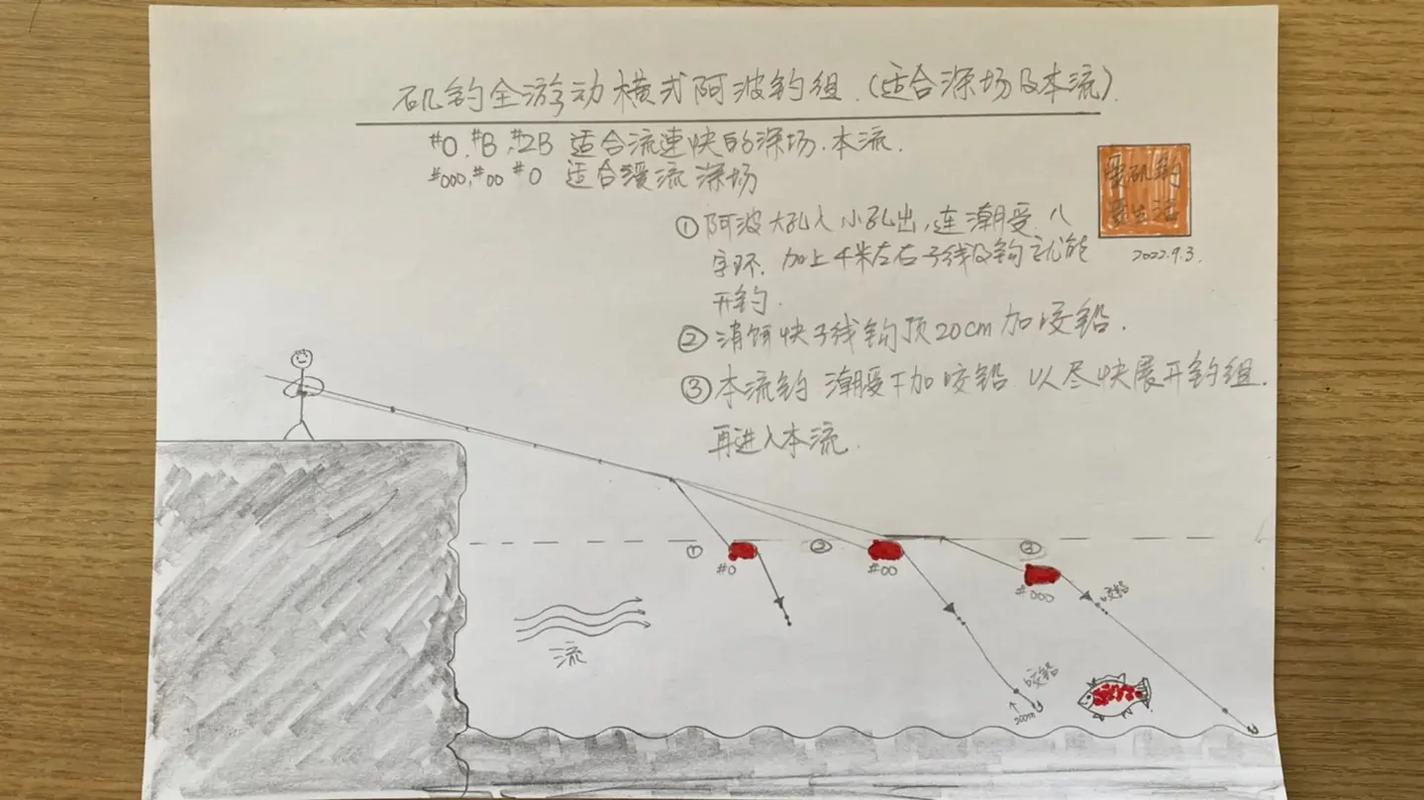 矶钓全游动横式阿波钓组.(适合深场及本流)
#0.#B.#2B 适合流速快的深场.本流.
#000.#00 #0 适合缓流深场
爱矶钓
爱生活
2022.9.3.
①阿波大孔入小孔出,连潮受.八
字环.加上4米左右子线及钩就能
开钓.
②消饵快子线钩顶20cm加咬铅.
③本流钓 潮受下加咬铅 以尽快展开钓组.
再进入本流.
① ② ③
#0 #00 #000
咬铅
流
咬铅
20cm